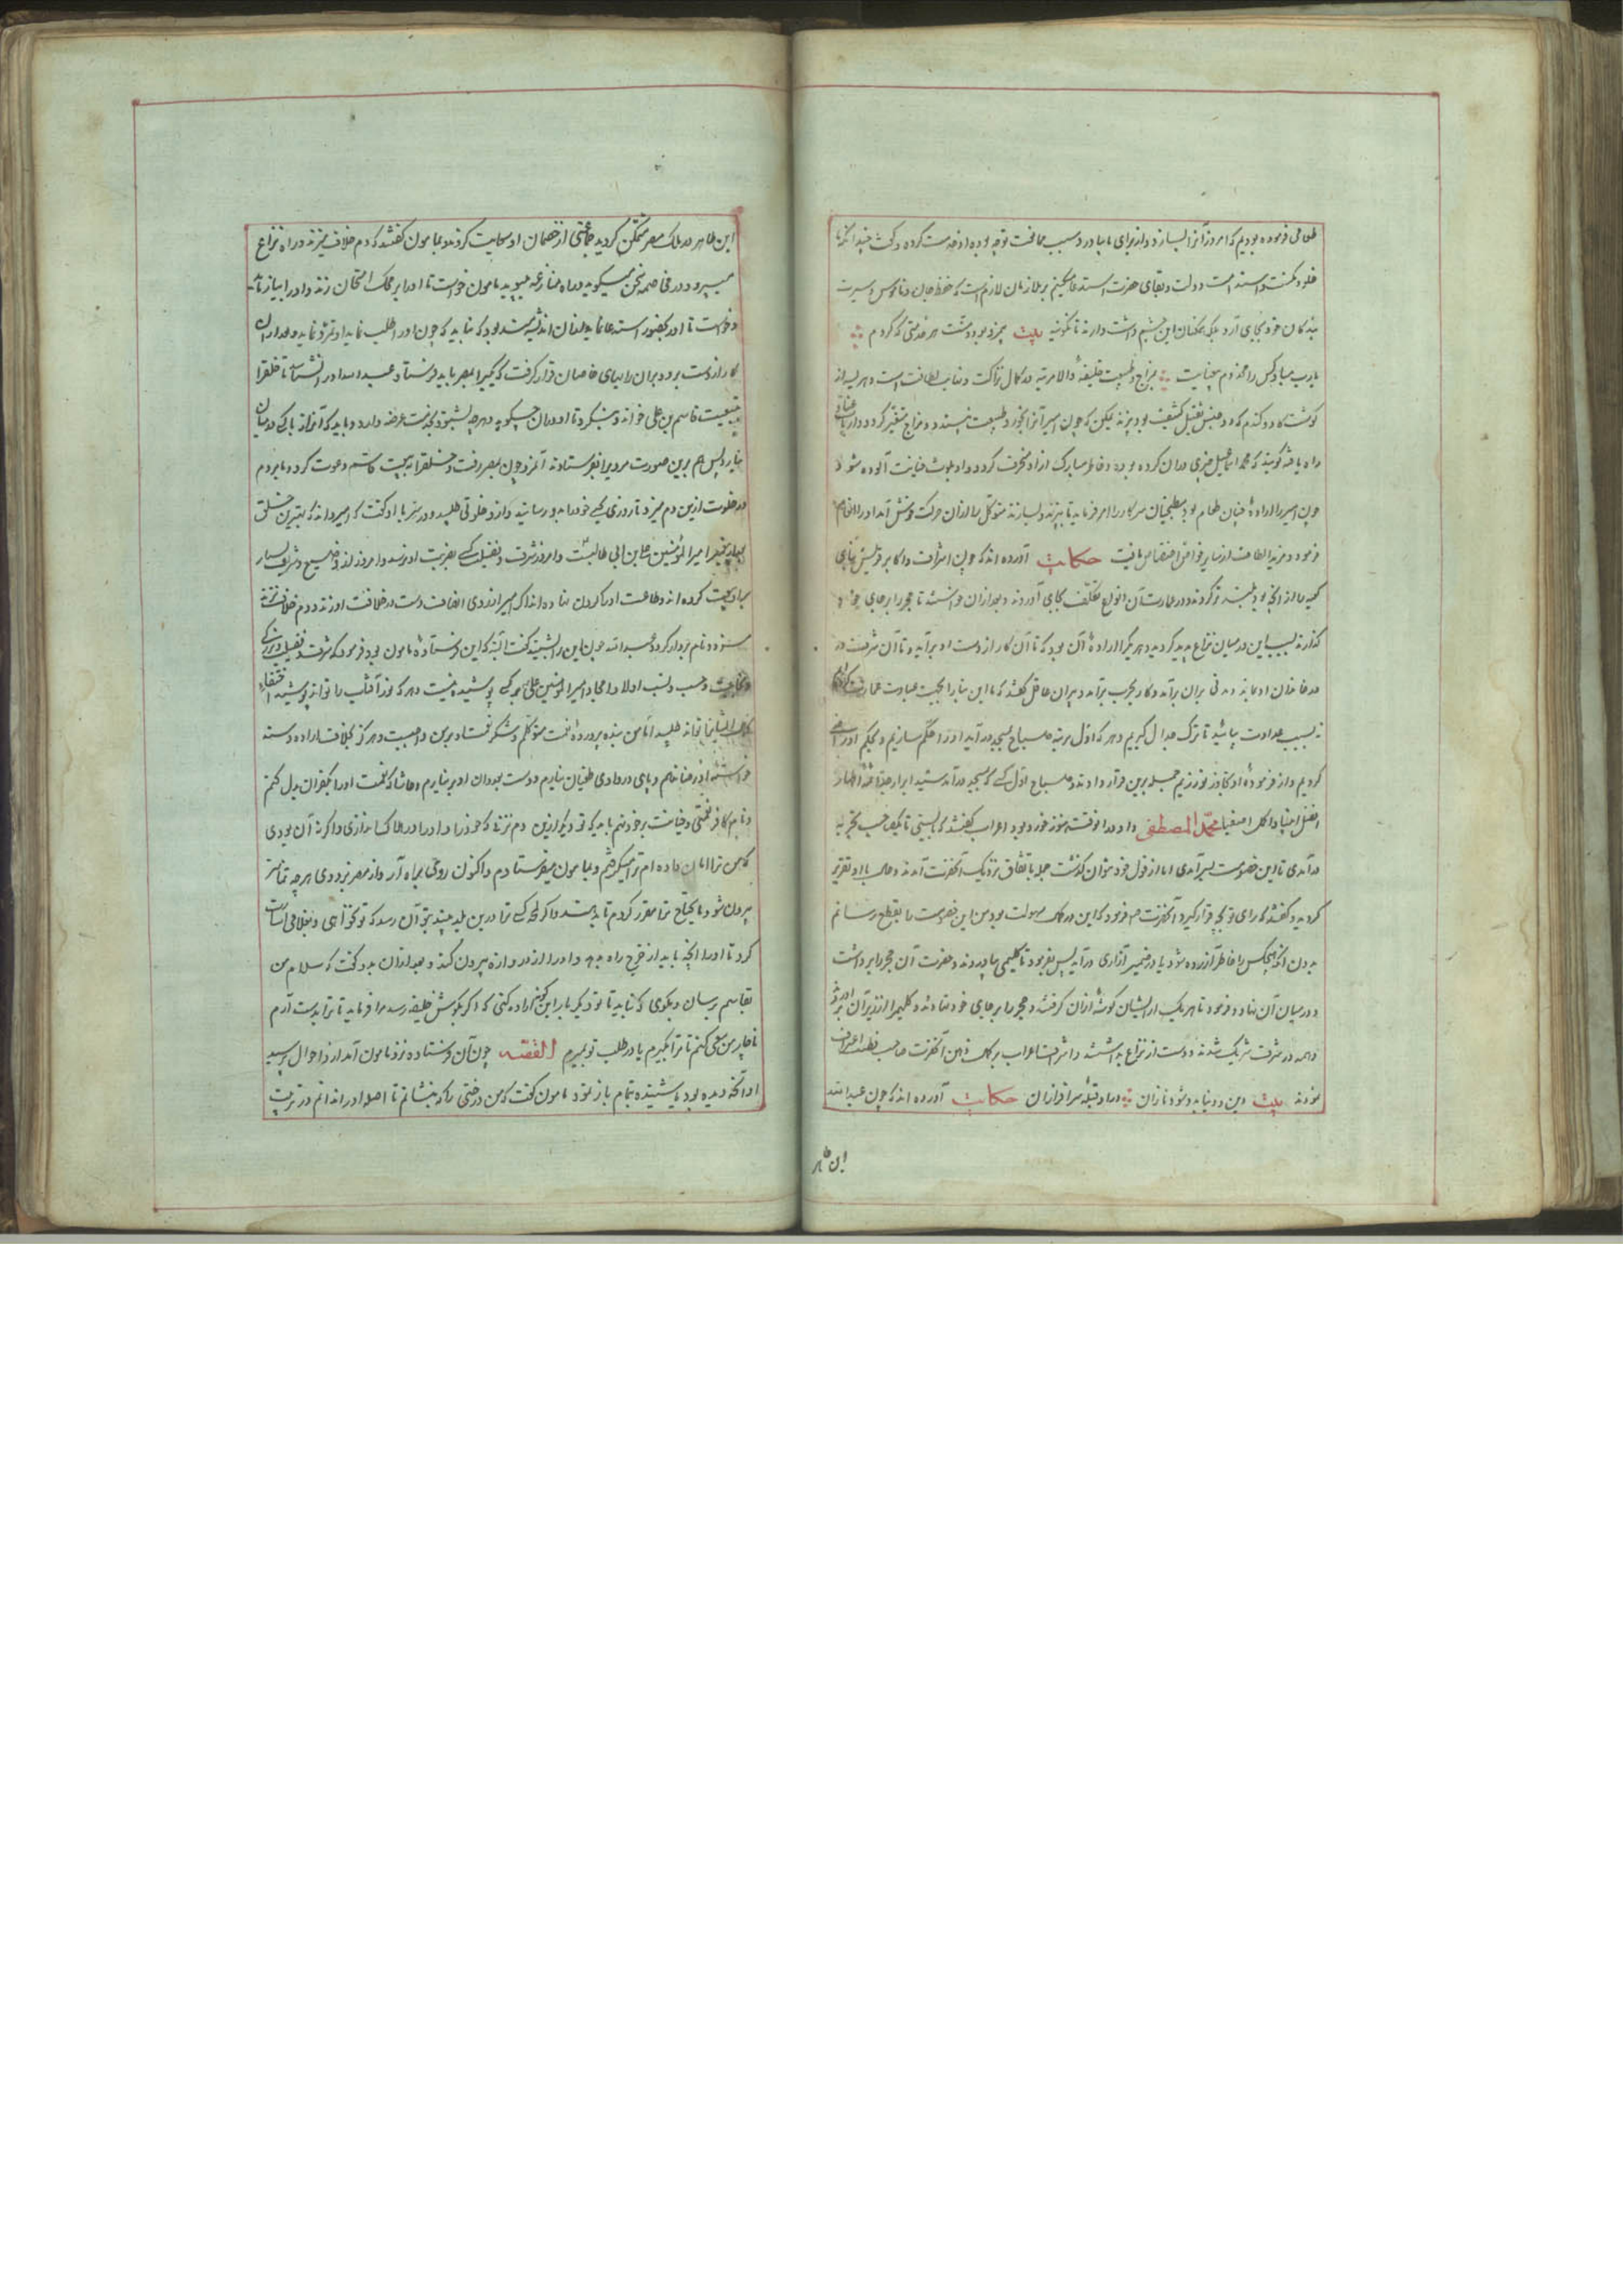 طعامی فرموده بودیم که امروز آنرا بسازد و از برای ما بیاورد و سبب مخالفت توجه بوده او خدمت کرده و گفت
دولت و بقای حضرت است بر ملازمان لازم است که حفظ جان و ناموس و سیرت
بندگان خود بجای آرد بلکه این چشم داشت دارند تا بیت بمزد بود و منت هر خدمتی که کردم
یارب مباد کس را مخدوم بیعنایت مزاج و طبیعت خلیفه والا مرتبه در کمال نزاکت و غایت لطافت است و هریسه از
گوشت گاو و گندم که دو جنس ثقیل کثیف بود پزند لیکن که چون امیر آنرا بخورد طبیعت نپسندد و مزاج متغیر گردد
راه یافته گویند که محمد اسماعیل چیزی در آن کرده بود و خاطر مبارک از او منحرف گردد و او بلوث خیانت آلوده شود
چون امیر را اراده چنان طعام بود مطبخیان سرکار را امر فرماید تا بپزند و بسازند متوکل را از آن حرکت خوش آمد او را انعام
فرمود و مزید الطاف از سایر خواص اختصاص یافت حکایت آورده اند که چون اشراف و اکابر قریش بنای
کعبه را از آنچه بود بلندتر کردند و در عمارت آن انواع تکلف بجای آوردند و بعد از آن خواستند تا حجر را بر جای خود
گذارند بسبب این در میان نزاع پدید گردید و هر یک را اراده آن بود که تا آن کار از دست او برآید و تا آن شرف در
خاندان او بماند و مدتی بر آن برآمد و کار بحرب برآمد و پیران عاقل گفتند که ما این بنا را بجهت عبادت عمارت کردیم
نه بسبب عداوت بیائید تا ترک جدال گیریم و هر که اول مرتبه صباح بمسجد درآید او را حکم سازیم و بحکم او راضی
گردیم و از فرموده او تجاوز نورزیم جمله برین قرار دادند و صباح اول کسی که بمسجد درآمد سید ابرار
افضل انبیا و اکمل اصفیا محمد المصطفی بود و او در آنوقت هنوز خورد بود اعراب گفتند که
درآمدی تا این خصومت بسر آمدی اما از قول خود نتوان گذشت جمله باتفاق نزدیک آنحضرت آمدند و حال با او تقریر
کردند و گفتند که رای تو بچه قرار گیرد آنحضرت فرمود که این در کمال سهولت بود من این خصومت را بقطع رسانم
بدون آنکه هیچکس را خاطر آزرده شود یا در ضمیر آزاری درآید پس بفرمود تا گلیمی بیاوردند و حضرت آن حجر را برداشت
و در میان آن نهاد و فرمود تا هر یک از ایشان گوشه از آن گرفتند و حجر را بر جای خود نهادند و گلیم را از زیر آن
و همه در شرف شریک شدند و دست از نزاع بداشتند و اشراف اعراب بر کمال ذهن آنحضرت صاحب فطنت اعتراف
نمودند بیت دین و دنیا بدو شود نازان در او قبله سرافرازان حکایت آورده اند که چون عبد الله
ابن طاهر
ابن طاهر در ملک مصر متمکن گردید جماعتی از خصمان او سعایت کردند و بمامون گفتند که دم خلاف میزند و راه نزاع
میسپرد و در مخاصمه سخن میگوید و راه منازعه میپوید مامون خواست تا او را بر محک امتحان زند و او را بیازماید
و خواست تا او را بحضور استدعا نماید از آن اندیشمند بود که نباید که چون او را طلب نماید او تمرد نماید و بعد از آن
کار از دست برود بر آن رای خاصان قرار گرفت که کسی را بمصر باید فرستاد تا خلق را
ببیعت قاسم بن علی خواند و بنگرد تا او در آن چه گوید و هر چه بشنود بخدمت عرضه دارد و باید که آنرا با کسی در میان
نیارد پس هم برین صورت مردیرا بفرستادند آنمرد چون بمصر رفت و خلق را به بیعت قاسم دعوت کرد و با مردم
در خلوت ازین دم میزد تا روزی کسی خود را بدو رسانید و از او خلوتی طلبید و در سر با او گفت که امیر داند که بهترین خلق
بعد از پیغمبر امیر المؤمنین علی ابن ابی طالبست و امروز شرف و فضیلت کسی بقربت او رسد و امروز از وضیع و شریف بسیار
با او بیعت کرده اند و طاعت او را گردن نهاده اند اگر امیر از روی انصاف دست در خلافت او زند و دم خلافت
شود و نام بردار گردد عبد الله چون این را بشنید گفت البته که این فرستاده مامون بود فرمود که شرف و فضیلت و بزرگی
و نجابت و حسب و نسب اولاد امجاد امیر المؤمنین علی بر کسی پوشیده نیست و هر که نور آفتاب را تواند پوشید اختفاء
کمال ایشان تواند طلبید اما من بنده پرورده نعمت متوکلم و شکر نعمت او بر من واجبست و هرگز بخلاف اراده
خواسته او رضا ندهم و پای در وادی طغیان نیارم و دست بعدوان او بر نیارم و حاشا که نعمت او را بکفران بدل کنم
و نام کافر نعمتی و خیانت بر خود نهم باید که تو دیگر ازین دم نزنی که خود را و او را در هلاک نیندازی و اگر نه آن بودی
که من ترا امان داده ام ترا میگرفتم و بمامون میفرستادم و اکنون روی براه آر و از مصر بزودی هر چه تمامتر
بیرون شو و ما یحتاج ترا مقرر کردم تا بدهند و اگر لحظه کسی ترا درین بلد بیند بتو آن رسد که تو نخواهی و بغلامی اشارت
کرد تا او را آنچه باید از خرج راه بدهد و او را از دروازه بیرون کند و بعد از آن بدو گفت که سلام من
بقاسم برسان و بگوی که نباید تا تو دیگر بار این گونه اراده کنی که اگر بگوش خلیفه رسد مرا فرماید تا ترا بدست آرم
ناچار من سعی کنم تا ترا بگیرم یا در طلب تو بمیرم القصه چون آن فرستاده نزد مامون آمد از او احوال پرسید
او آنچه دیده بود و شنیده تمام باز نمود مامون گفت که من درختی را که بنشانم تا اصل او را ندانم در تربیت